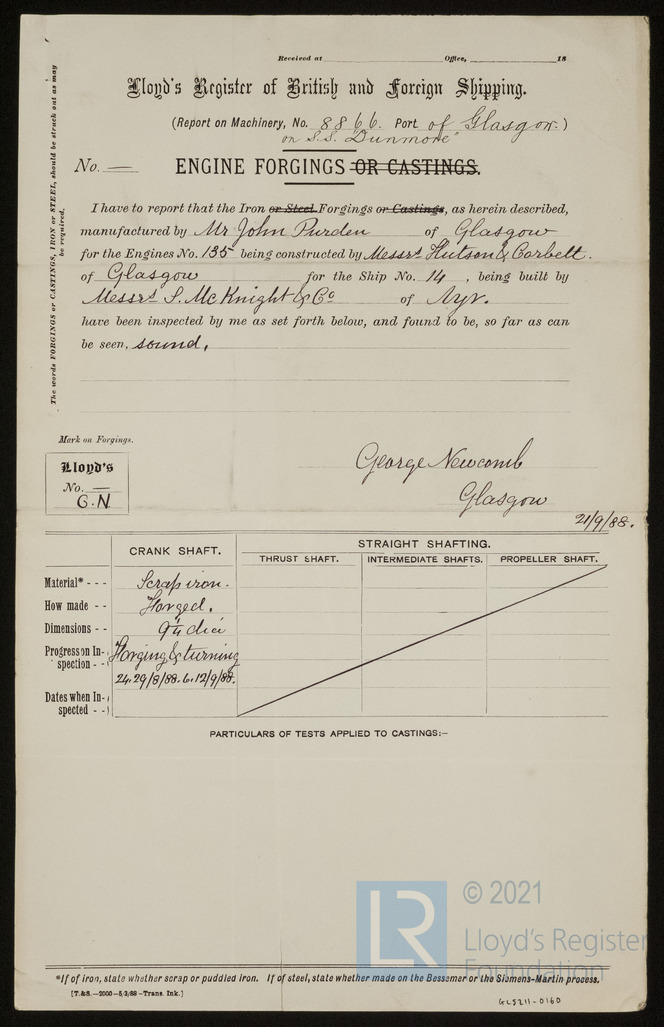 Received at Office, 18
Lloyd's Register of British and Foreign Shipping.
(Report on Machinery, No. 8866. Port of Glasgow.)
on S.S. "Dunmore"
No. —
ENGINE FORGINGS OR CASTINGS.
The words FORGINGS or CASTINGS, IRON or STEEL, should be struck out as may
be required.
I have to report that the Iron or Steel Forgings or Castings, as herein described,
manufactured by Mr John Purden of Glasgow
for the Engines No. 135 being constructed by Messrs Hutson & Corbett.
of Glasgow for the Ship No. 14, being built by
Messrs S. McKnight & Co of Ayr.
have been inspected by me as set forth below, and found to be, so far as can
be seen, sound.
Mark on Forgings.
Lloyd's
No. —
G.N
George Newcomb
Glasgow
21/9/88.
CRANK SHAFT.
STRAIGHT SHAFTING.
THRUST SHAFT. INTERMEDIATE SHAFTS. PROPELLER SHAFT.
Material* - - - Scrap iron.
How made - - Forged.
Dimensions - - 9¼" dia
Progress on In- Forging & turning
spection - -
24.29/8/88. 6.12/9/88.
Dates when In-
spected - -
PARTICULARS OF TESTS APPLIED TO CASTINGS:—
© 2021
LR
Lloyd's Register
Foundation
*If of iron, state whether scrap or puddled iron. If of steel, state whether made on the Bessemer or the Siemens-Martin process.
[T.&S.—2000—5/3/88—Trans. Ink.]
GLS211-0160